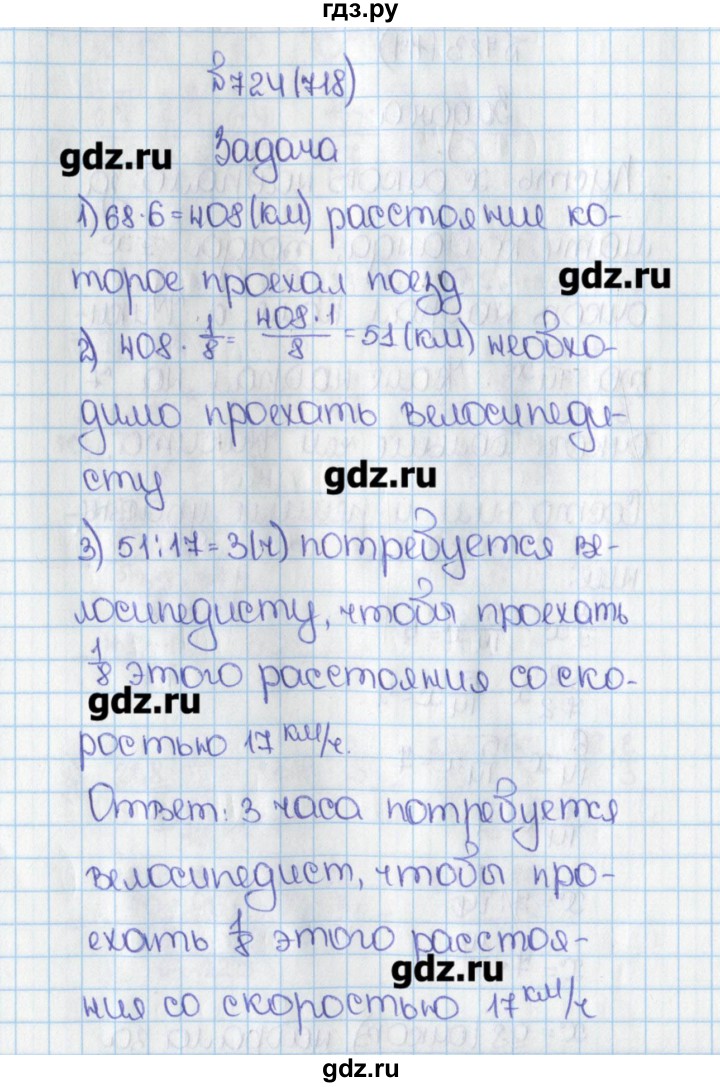 гдз.ру
№724(718)
Задача
gdz.ru
1) 68·6=408(км) расстояние ко-
торое проехал поезд
gdz.ru
2) 408 · 1/8 = 408·1/8 = 51(км) необхо-
димо проехать велосипеди-
сту
gdz.ru
3) 51:17=3(ч) потребуется ве-
лосипедисту, чтобы проехать
1/8 этого расстояния со ско-
gdz.ru
ростью 17 км/ч.
Ответ: 3 часа потребуется
велосипедист, чтобы про-
ехать 1/8 этого расстоя-
gdz.ru
ния со скоростью 17 км/ч
gdz.ru